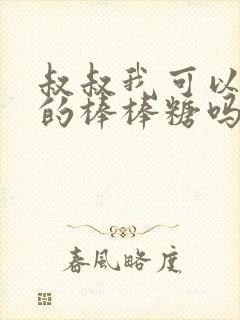 叔叔我可以
的棒棒糖吗
春风略度